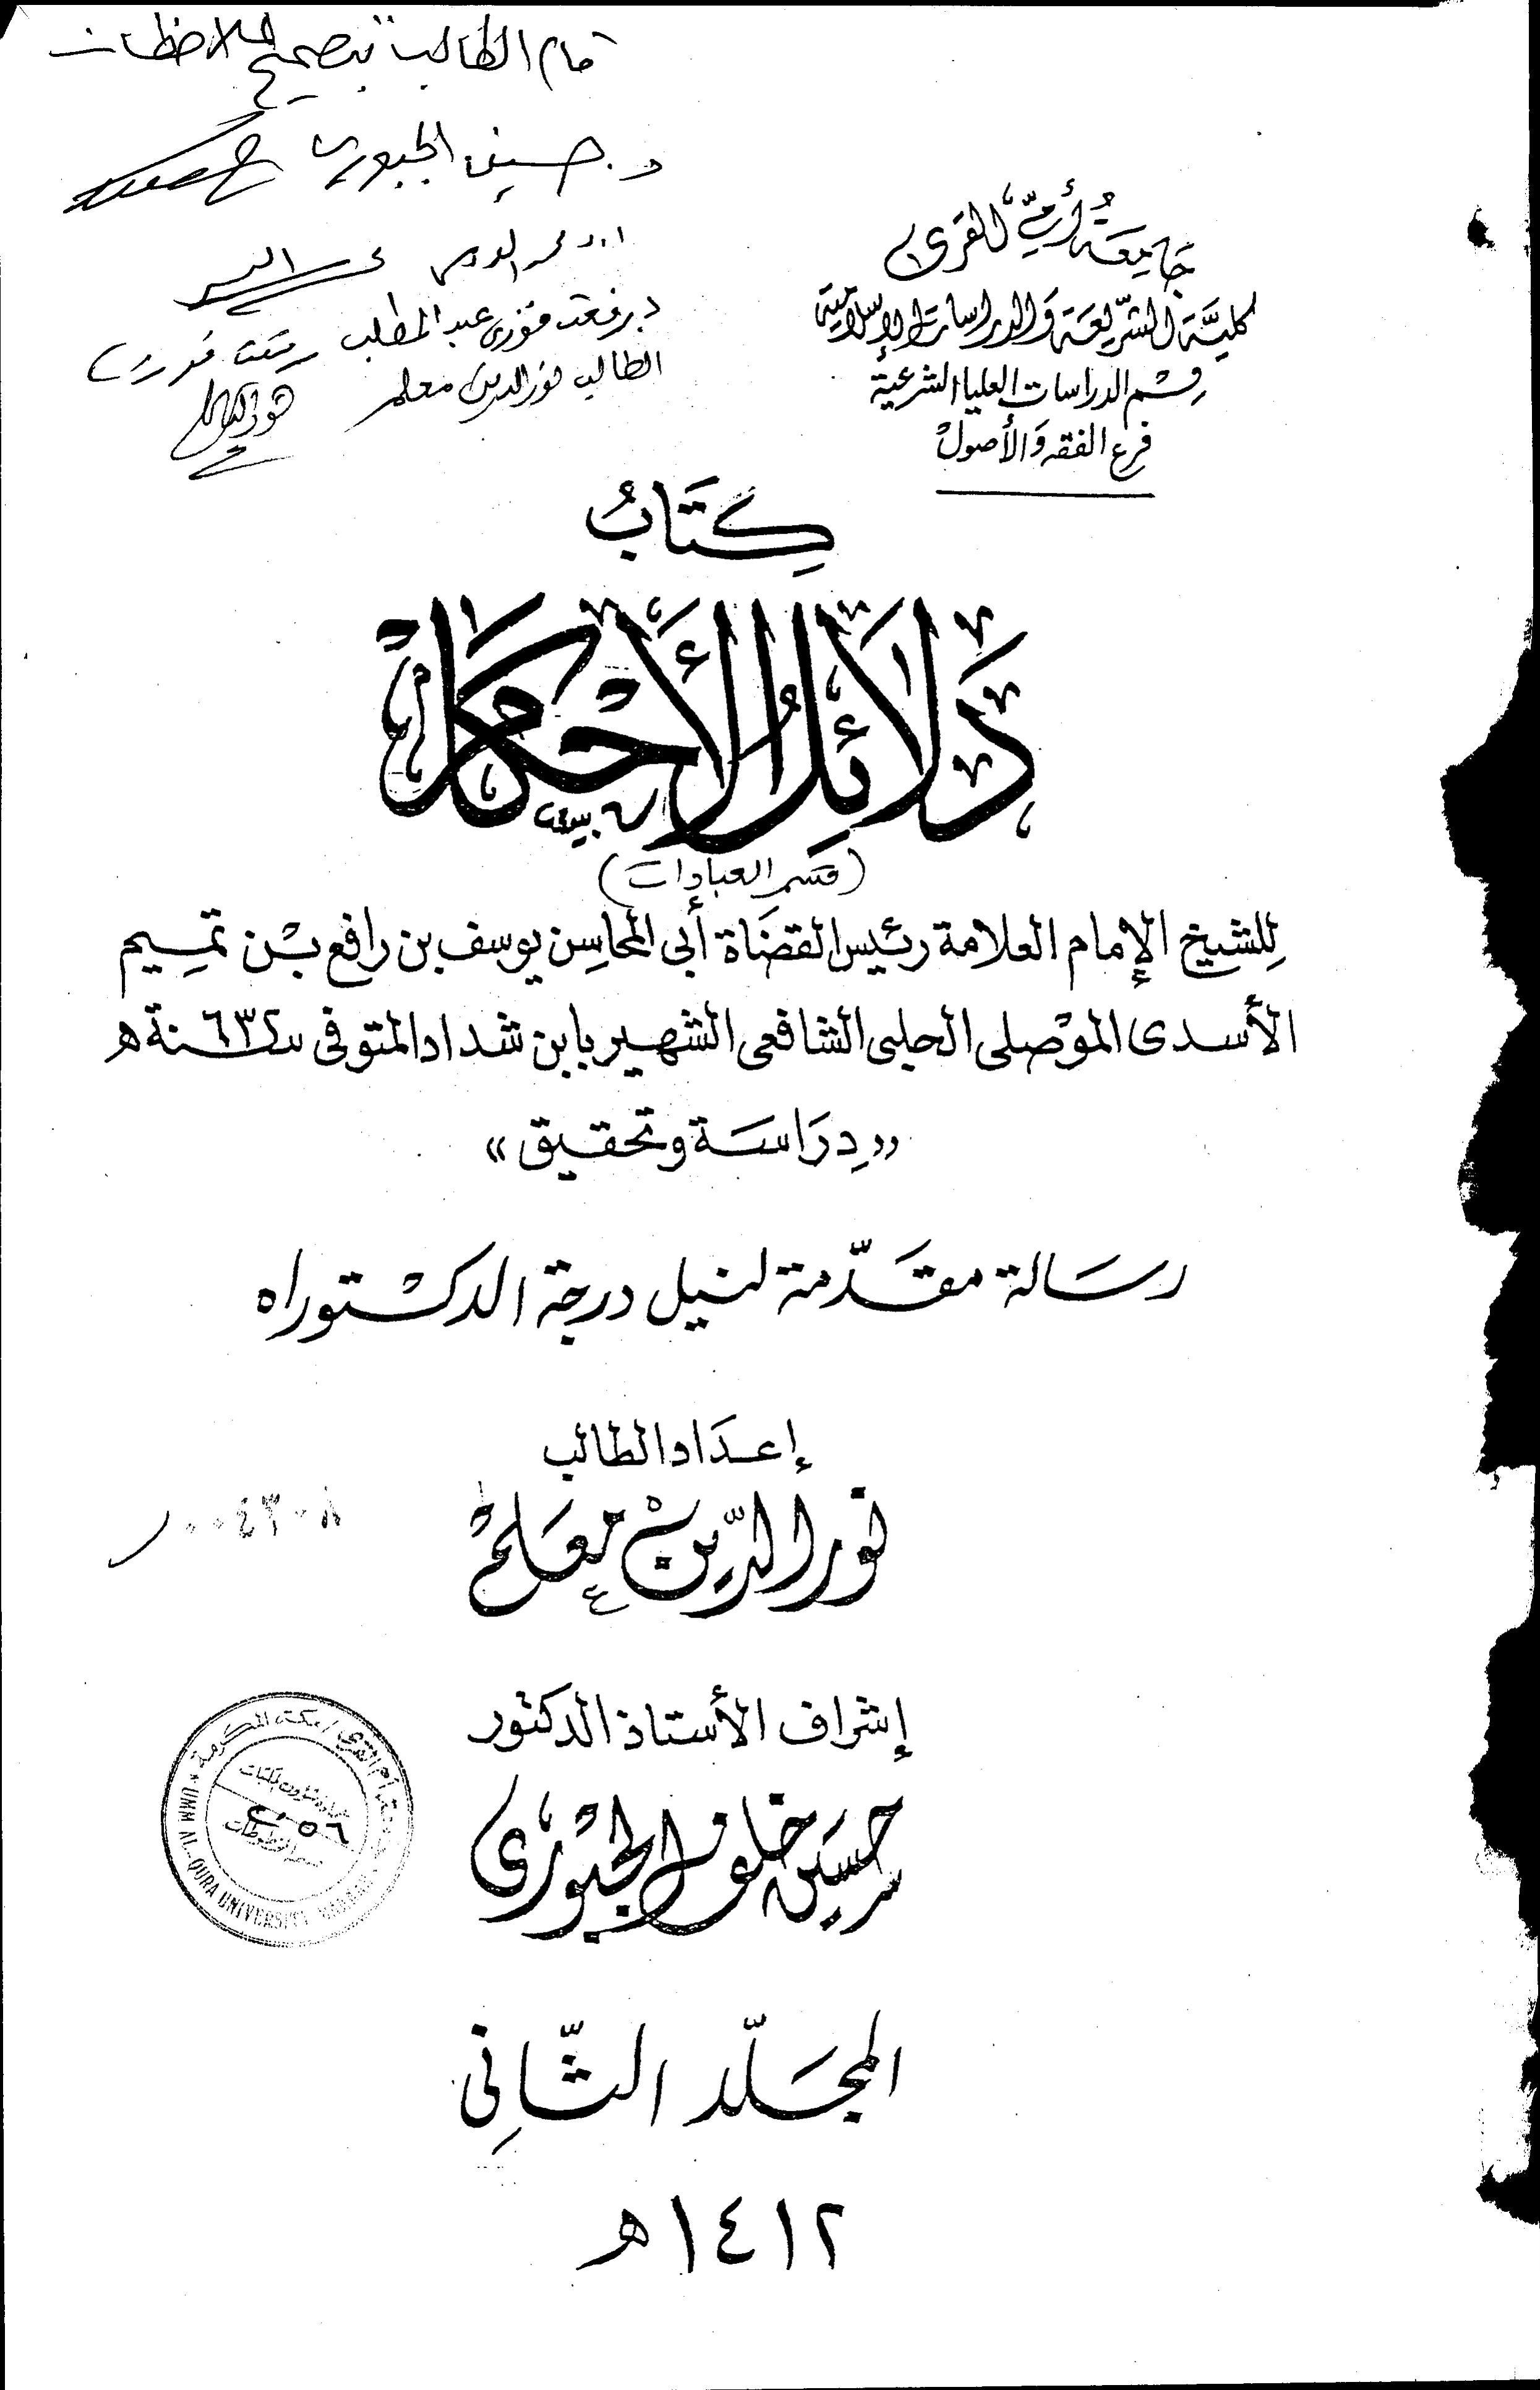 قام الطالب بتصحيح الملاحظات
د. حسين الجبوري
د. رفعت فوزي عبد المطلب رفعت فوزي
الطالب نور الدين معلم
جَامِعَةُ أُمِّ القرى
كليَّة الشّريعَة وَالدراسات الإسلامية
قِسْم الدراسات العليا الشرعية
فرع الفقه وَالأصولْ
كِتَابُ
دَلَائِلُ الأَحْكَامْ
(قسم العبادات)
لِلشيخ الإمام العلامة رئيس القضَاة أبى المحاسِن يوسف بن رافع بْن تمِسيم
الأسدى الموْصلى الحلبى الشافعى الشهير بابن شداد المتوفى سنة ٦٣٢ هـ
«دِرَاسَة وتحقيق»
رسَالة مقَدّمة لنيل درجة الدكْتوراه
إعدَاد الطالب
نور الدّين معَلمْ
٤٣٠٨
إشراف الأستاذ الدكتور
حسَين خلف الجبْورى
أم القرى / مكة المكرمة
UMM AL-QURA UNIVERSITY MAKKAH
المجَلّد الثّانِى
١٤١٢هـ